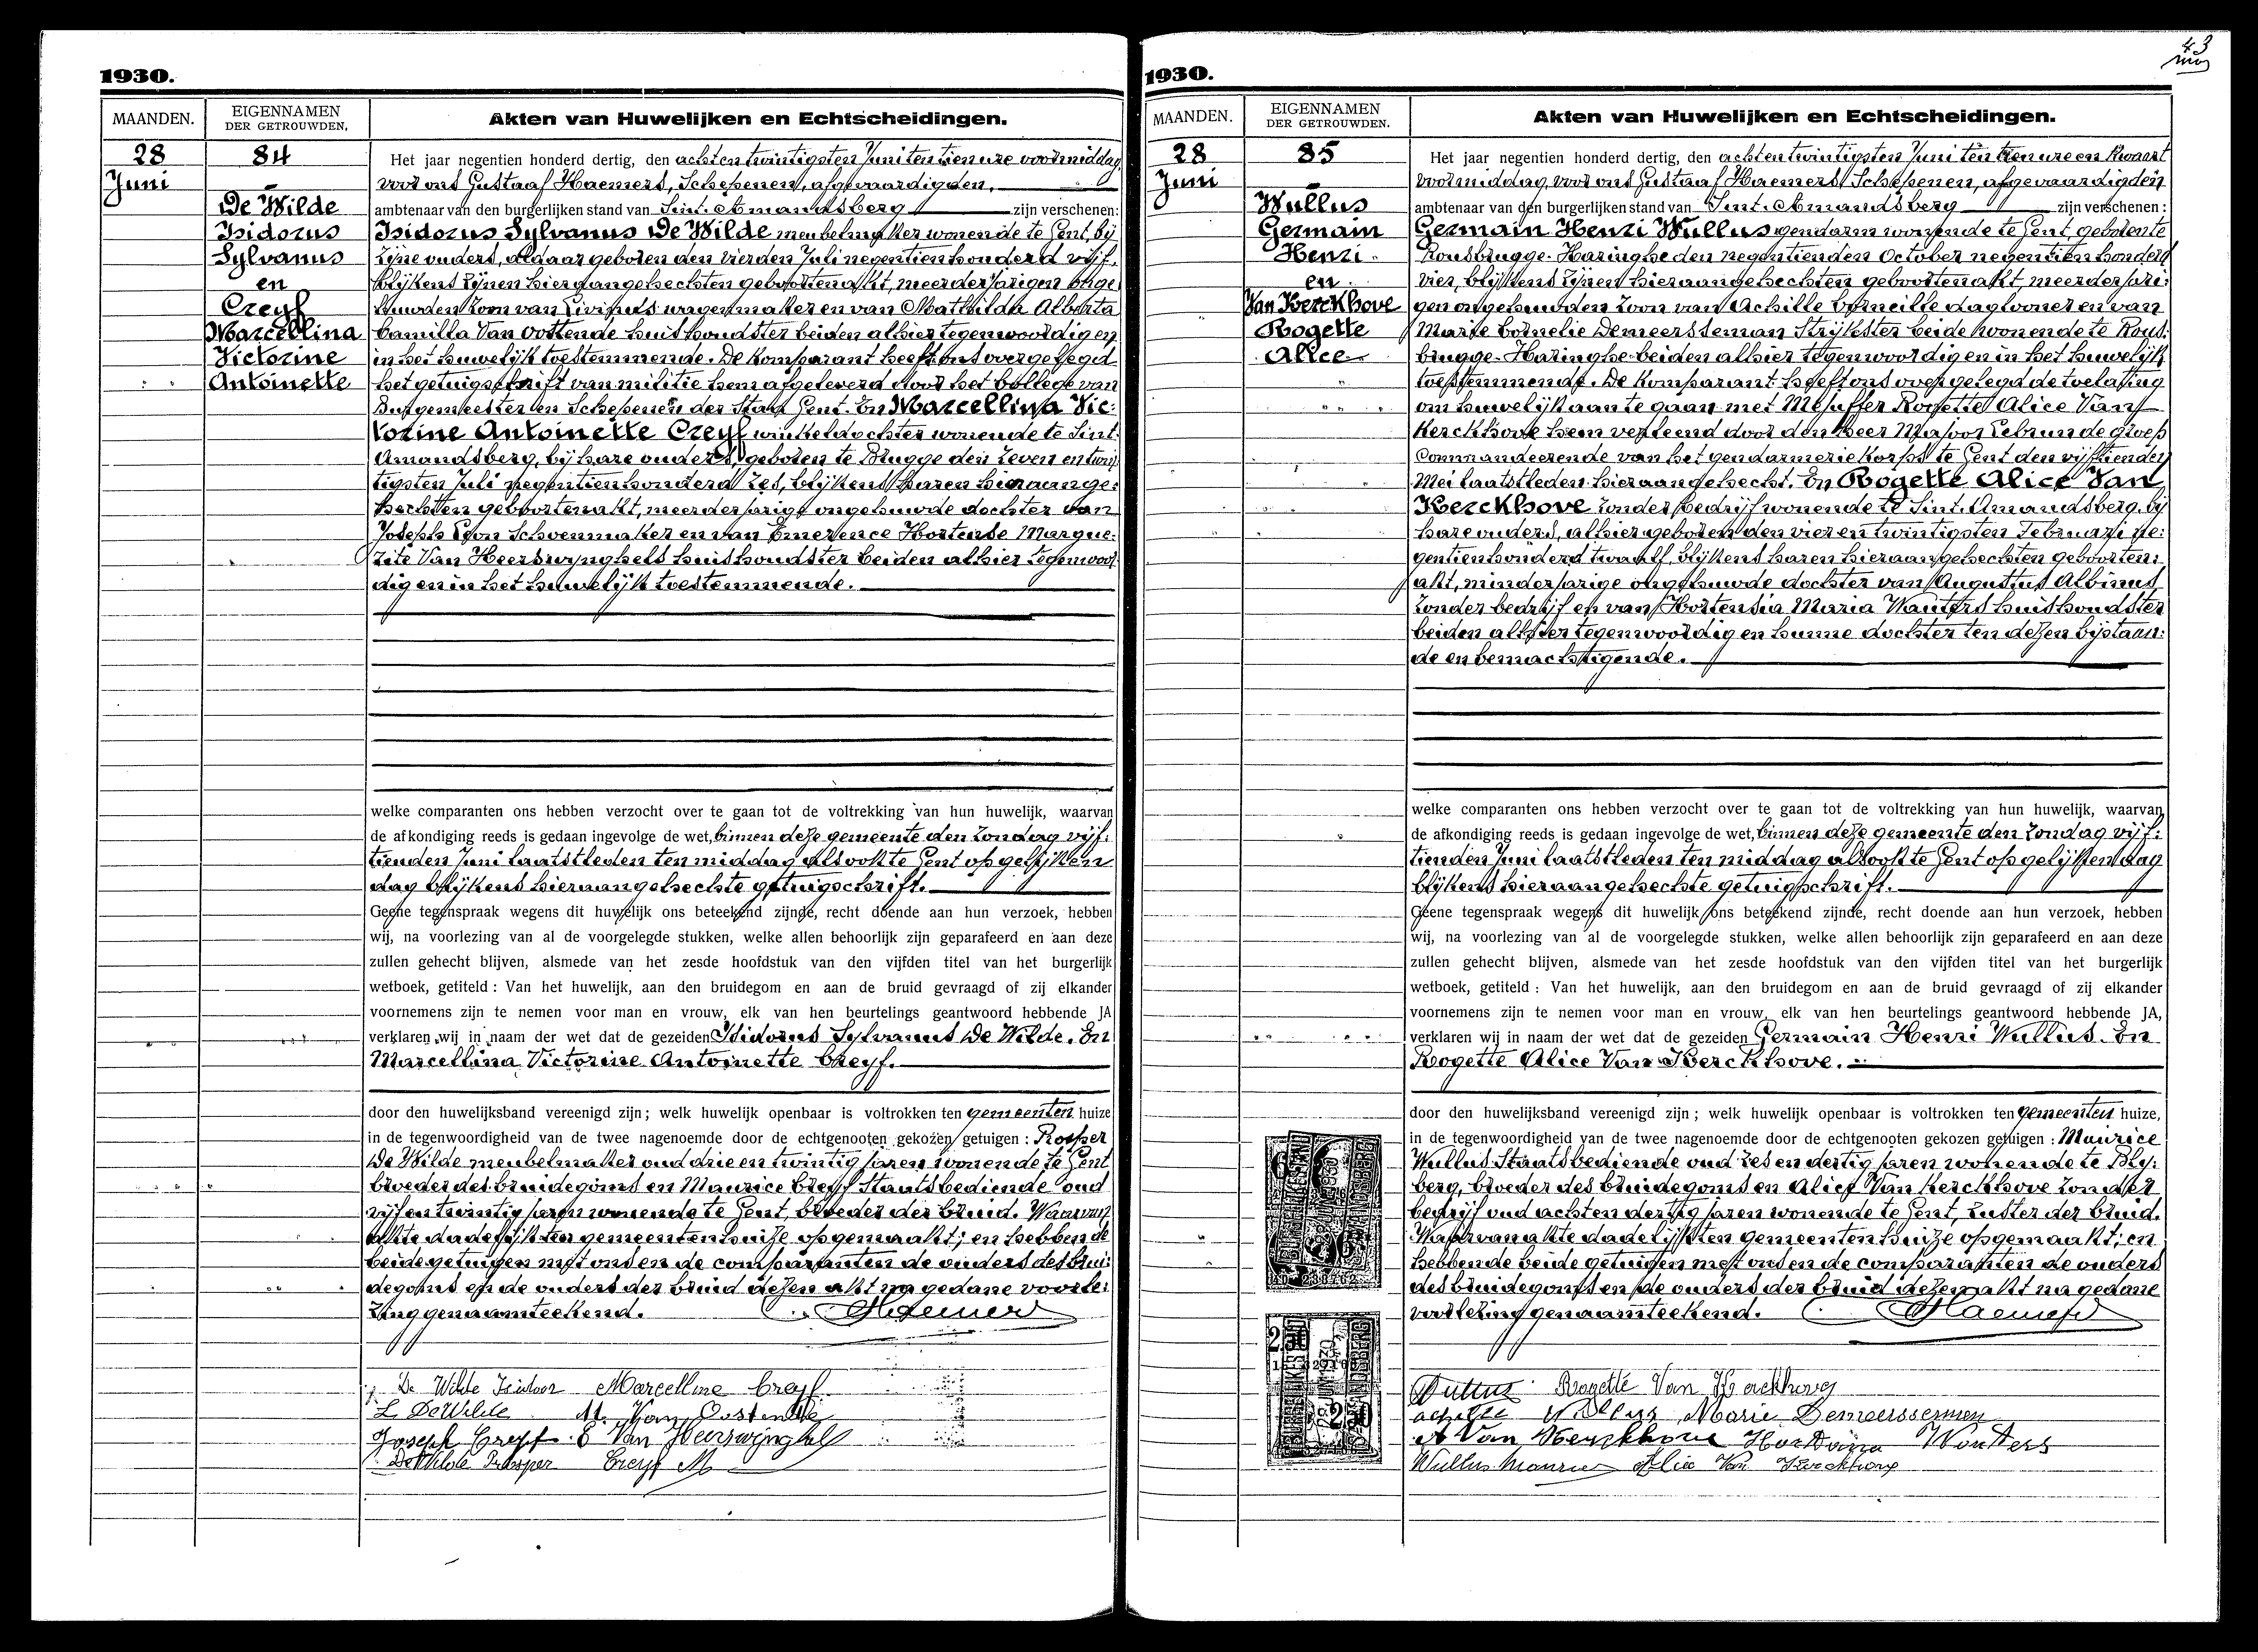 1930.
MAANDEN.
EIGENNAMEN
DER GETROUWDEN.
Akten van Huwelijken en Echtscheidingen.
28
Juni
84
De Wilde
Isidorus
Sylvanus
en
Creyf
Marcellina
Victorine
Antoinette
Het jaar negentien honderd dertig, den achtentwintigsten Juni ten tien ure voormiddag,
voor ons Gustaaf Haemers, Schepenen, afgevaardigden,
ambtenaar van den burgerlijken stand van Sint-Amandsberg zijn verschenen:
Isidorus Sylvanus De Wilde meubelmaker wonende te Gent, bij
zijne ouders, aldaar geboren den vierden Juli negentienhonderd vijf,
blijkens zijnen hieraangehechten geboortenakt, meerderjarigen onge-
huwden zoon van Livinus wagenmaker en van Mathilda Alberta
Camilla Van Oostende huishoudster beiden alhier tegenwoordig en
in het huwelijk toestemmende. De komparant heeft ons overgelegd
het getuigschrift van militie hem afgeleverd door het College van
Burgemeester en Schepenen der Stad Gent. En Marcellina Vic-
torine Antoinette Creyf winkeldochter wonende te Sint-
Amandsberg, bij hare ouders, geboren te Brugge den zeven en twin-
tigsten Juli negentienhonderd zes, blijkens haren hieraange-
hechten geboortenakt, meerderjarige ongehuwde dochter van
Joseph Leon Schoenmaker en van Emerence Hortense Margue-
rite Van Heerswynghels huishoudster beiden alhier tegenwoor-
dig en in het huwelijk toestemmende.
welke comparanten ons hebben verzocht over te gaan tot de voltrekking van hun huwelijk, waarvan
de afkondiging reeds is gedaan ingevolge de wet, binnen deze gemeente den zondag vijf-
tienden Juni laatstleden ten middag alsook te Gent op gelijken
dag blijkens hieraangehechte getuigschrift.
Geene tegenspraak wegens dit huwelijk ons beteekend zijnde, recht doende aan hun verzoek, hebben
wij, na voorlezing van al de voorgelegde stukken, welke allen behoorlijk zijn geparafeerd en aan deze
zullen gehecht blijven, alsmede van het zesde hoofdstuk van den vijfden titel van het burgerlijk
wetboek, getiteld : Van het huwelijk, aan den bruidegom en aan de bruid gevraagd of zij elkander
voornemens zijn te nemen voor man en vrouw, elk van hen beurtelings geantwoord hebbende JA
verklaren wij in naam der wet dat de gezeiden Isidorus Sylvanus De Wilde. En
Marcellina Victorine Antoinette Creyf.
door den huwelijksband vereenigd zijn ; welk huwelijk openbaar is voltrokken ten gemeenten huize
in de tegenwoordigheid van de twee nagenoemde door de echtgenooten gekozen getuigen : Prosper
De Wilde meubelmaker oud drie en twintig jaren wonende te Gent
broeder des bruidegoms en Maurice Creyf Staatsbediende oud
vijf en twintig jaren wonende te Gent, broeder der bruid. Waarvan
akte dadelijk ten gemeentenhuize opgemaakt; en hebbende
beide getuigen met ons en de comparanten de ouders des brui-
degoms en de ouders der bruid dezen akt na gedane voorle-
zing genaamteekend. Haemers
De Wilde Isidoor Marcelline Creyf
L. De Wilde M. Van Oostende
Joseph Creyf E Van Heerswynghels
De Wilde Prosper Creyf M
1930.
43
MAANDEN.
EIGENNAMEN
DER GETROUWDEN.
Akten van Huwelijken en Echtscheidingen.
28
Juni
85
Wullus
Germain
Henri
en
Van Kerckhove
Rogette
Alice
Het jaar negentien honderd dertig, den achtentwintigsten Juni ten tien ure en kwaart
voormiddag, voor ons Gustaaf Haemers, Schepenen, afgevaardigden
ambtenaar van den burgerlijken stand van Sint-Amandsberg zijn verschenen :
Germain Henri Wullus gendarm wonende te Gent geboren te
Rousbrugge-Haringhe den negentienden October negentienhonderd
vier, blijkens zijnen hieraangehechten geboortenakt, meerderjari-
gen ongehuwden zoon van Achille Corneille dagloner en van
Marie Cornelie Demeersseman Strijkster beide wonende te Rous-
brugge-Haringhe beiden alhier tegenwoordig en in het huwelijk
toestemmende. De komparant heeft ons overgelegd de toelating
om huwelijk aan te gaan met Mejuffer Rogette Alice Van
Kerckhove hem verleend door den Heer Majoor Lebrun de groep
Commandeerende van het gendarmeriekorps te Gent den vijftienden
Mei laatstleden hieraangehecht. En Rogette Alice Van
Kerckhove zonder bedrijf wonende te Sint-Amandsberg, bij
hare ouders, alhier geboren den vier en twintigsten Februari ne-
gentienhonderd twaalf, blijkens haren hieraangehechten geboorten-
akt, minderjarige ongehuwde dochter van Augustus Albinus
zonder bedrijf en van Hortensia Maria Wauters huishoudster
beiden alhier tegenwoordig en hunne dochter ten dezen bijstaan-
de en bemachtigende.
welke comparanten ons hebben verzocht over te gaan tot de voltrekking van hun huwelijk, waarvan
de afkondiging reeds is gedaan ingevolge de wet, binnen deze gemeente den zondag vijf-
tienden Juni laatstleden ten middag alsook te Gent op gelijken dag
blijkens hieraangehechte getuigschrift.
Geene tegenspraak wegens dit huwelijk ons beteekend zijnde, recht doende aan hun verzoek, hebben
wij, na voorlezing van al de voorgelegde stukken, welke allen behoorlijk zijn geparafeerd en aan deze
zullen gehecht blijven, alsmede van het zesde hoofdstuk van den vijfden titel van het burgerlijk
wetboek, getiteld : Van het huwelijk, aan den bruidegom en aan de bruid gevraagd of zij elkander
voornemens zijn te nemen voor man en vrouw, elk van hen beurtelings geantwoord hebbende JA,
verklaren wij in naam der wet dat de gezeiden Germain Henri Wullus. En
Rogette Alice Van Kerckhove.
door den huwelijksband vereenigd zijn ; welk huwelijk openbaar is voltrokken ten gemeenten huize,
in de tegenwoordigheid van de twee nagenoemde door de echtgenooten gekozen getuigen : Maurice
Wullus Staatsbediende oud zes en dertig jaren wonende te Bly-
berg, broeder des bruidegoms en Alice Van Kerckhove zonder
bedrijf oud achten dertig jaren wonende te Gent, zuster der bruid.
Waarvan akte dadelijk ten gemeentenhuize opgemaakt; en
hebbende beide getuigen met ons en de comparanten de ouders
des bruidegoms en de ouders der bruid dezen akt na gedane
voorlezing genaamteekend. Haemers
Wullus Rogette Van Kerckhove
achille Wullus Marie Demeersseman
A Van Kerckhove Wouters
Wullus Maurice Alice Van Kerckhove